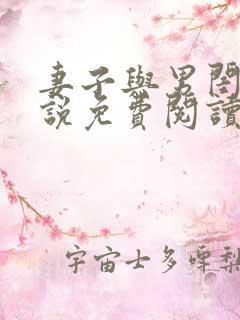 妻子與男閨
說免費閱讀
宇宙士多啤梨